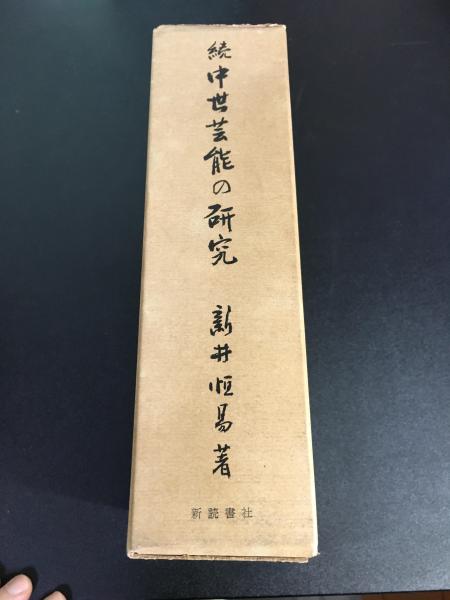 続中世芸能の研究
新井恒易著
新読書社